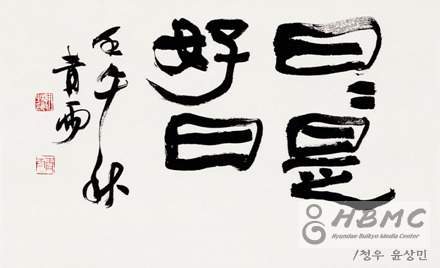 日〻是
好日
壬午秋
青雨
HBMC
Hyundae Bulkyo Media Center
/청우 윤상민